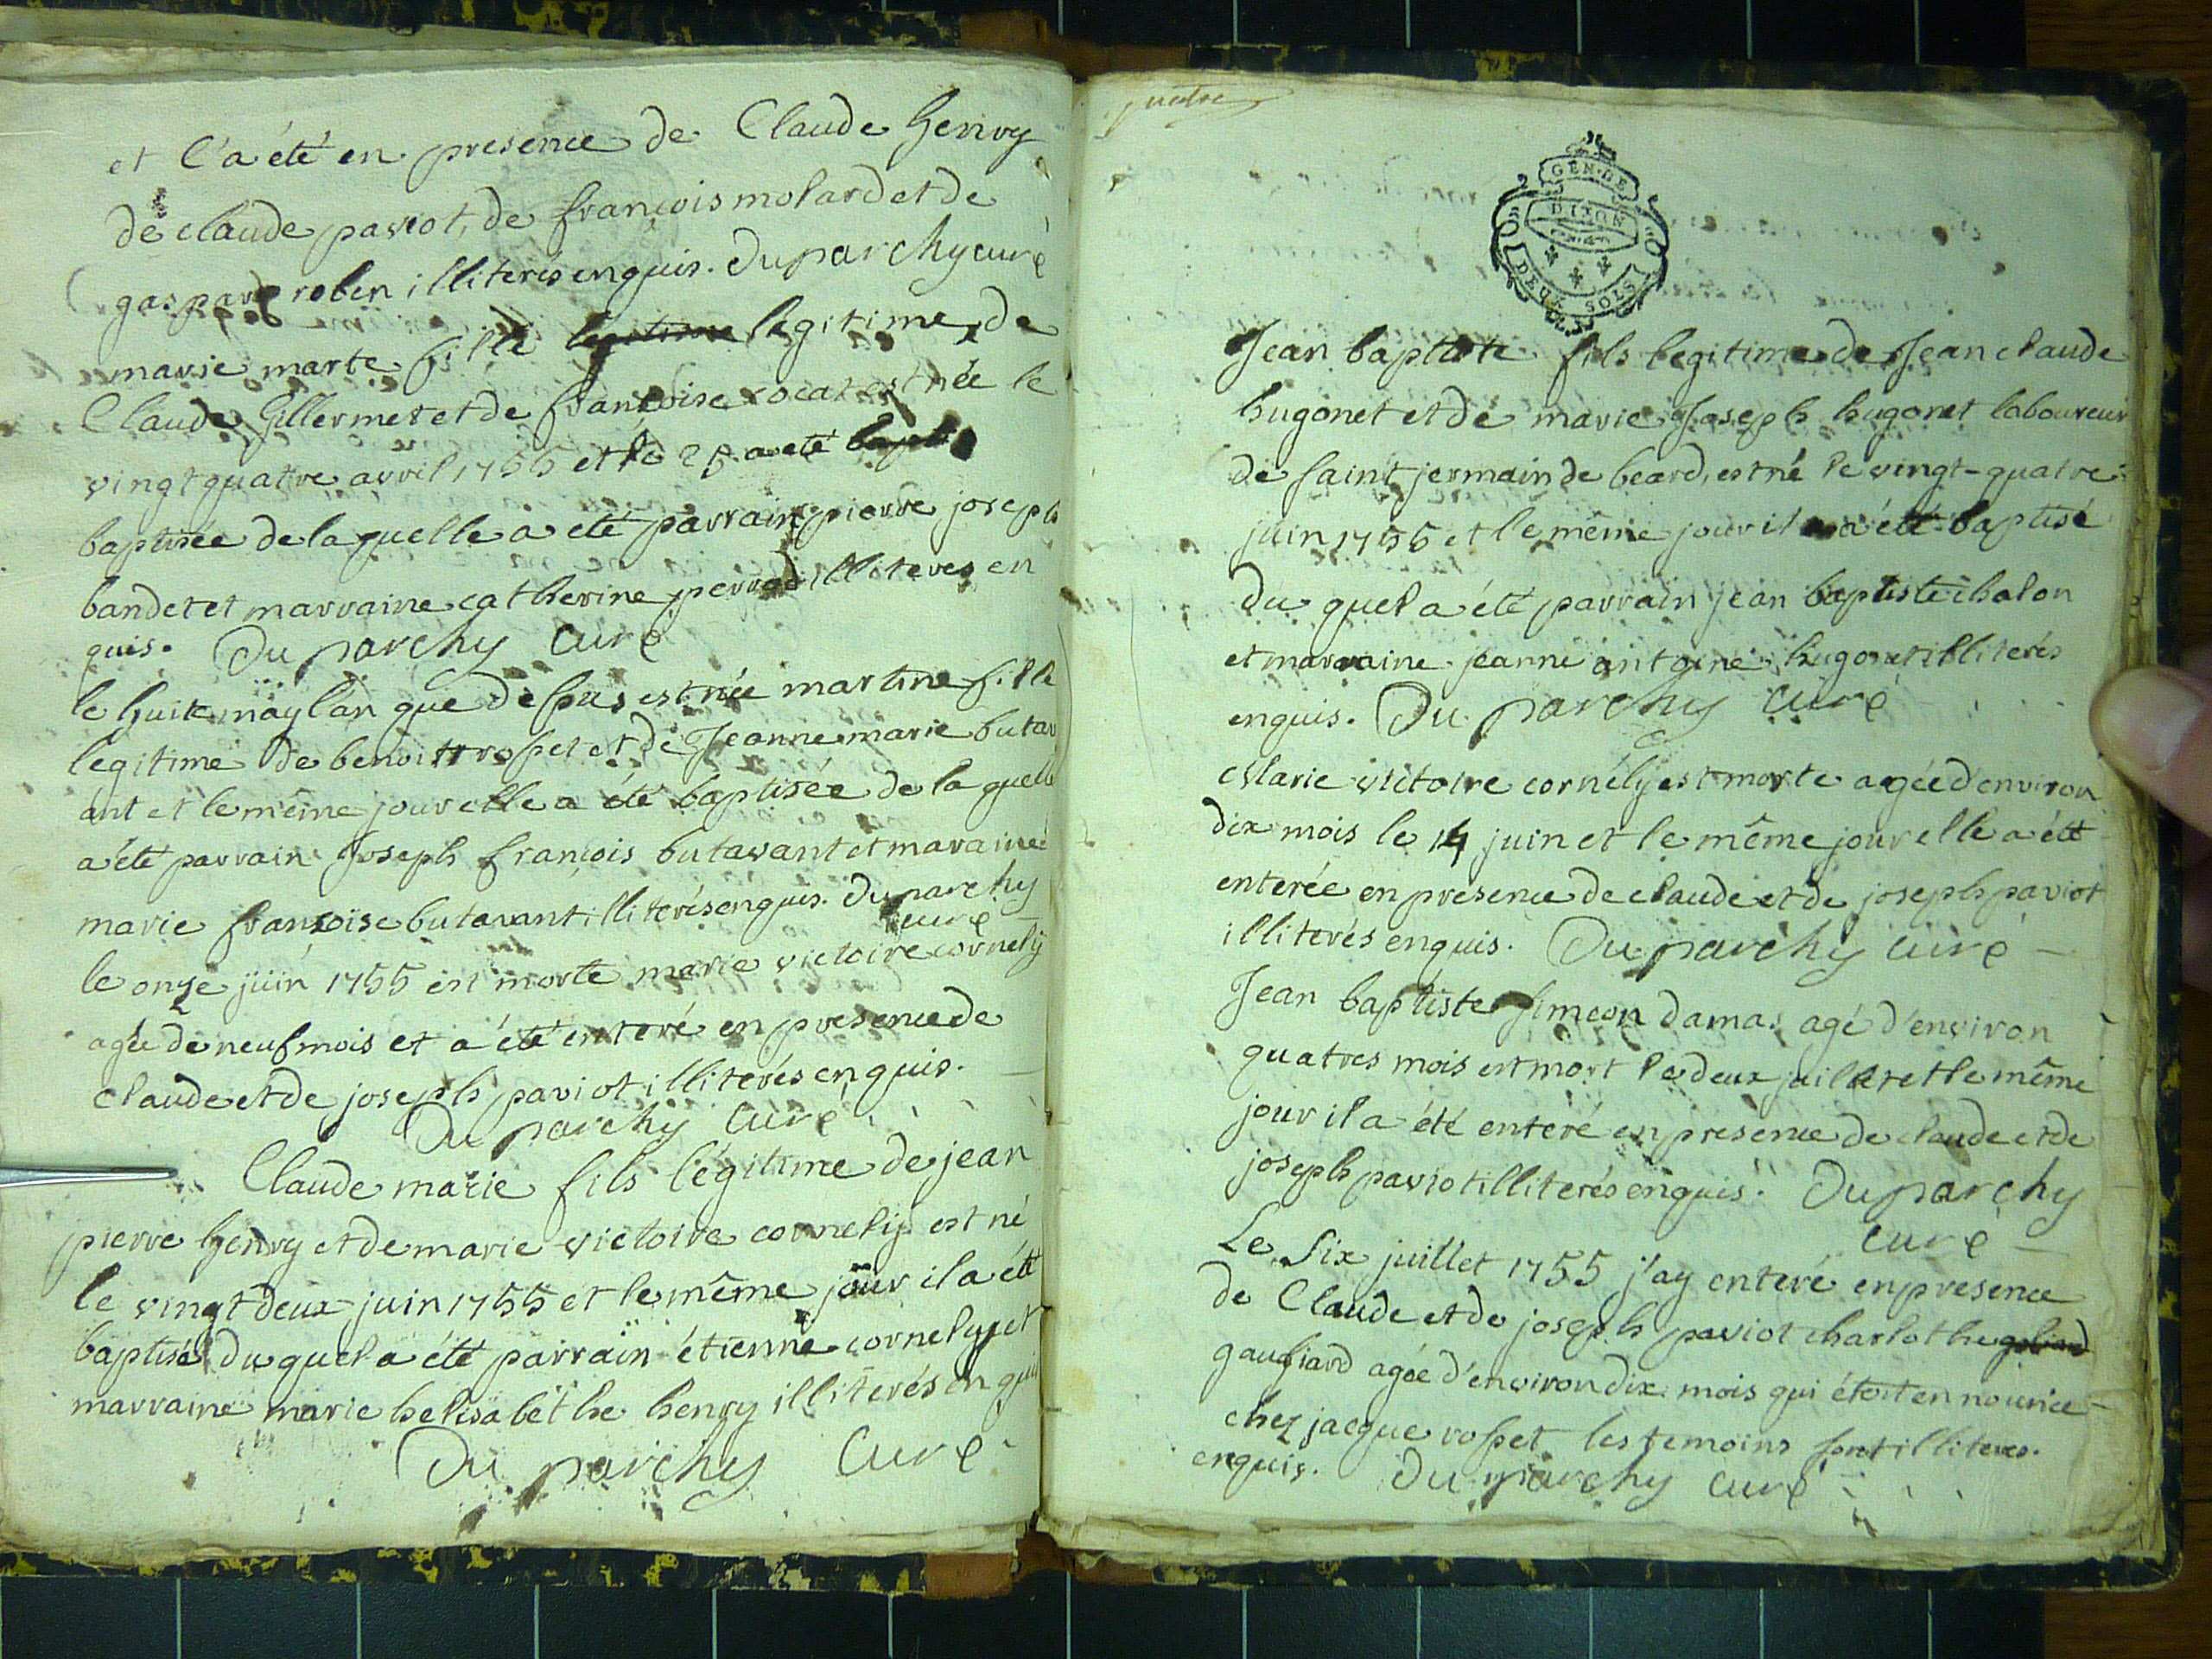 et l'a été en presence de Claude henry
de claude paviot, de françois molard et de
gaspard robin illiterés enquis. Duparchy curé
marie marte fille legitime de
Claude Gillermet et de françoise rocat est née le
vingt quatre avril 1755 et le 25 a eté
baptisée de laquelle a eté parrain pierre joseph
bandet et marraine catherine perrod illiteres en
quis. Duparchy curé
le huit may l'an que dessus est née martine fille
legitime de benoit rosset et de Jeanne marie butav
ant et le même jour elle a été baptisée de laquelle
a été parrain Joseph françois butavant et maraine
marie françoise butavant illiterés enquis. Duparchy
curé
le onze juin 1755 est morte marie victoire cornelÿ
agée de neuf mois et a été enteré en presence de
claude et de joseph paviot illiterés enquis.
Duparchy Curé
Claude marie fils légitime de jean
pierre henry et de marie victoire cornelÿ est né
le vingt deux juin 1755 et le même jour il a été
baptisé duquel a été parrain étienne cornely et
marraine marie helisabethe henry illiterés enquis
Duparchy Curé
quatre
GEN. DE
DIJON
DEUX SOLS
Jean baptiste fils legitime de Jean claude
hugonet et de marie Joseph hugonet laboureur
de saint jermain de beard, est né le vingt-quatre
juin 1755 et le même jour il a été baptisé
du quel a été parrain jean baptiste chalon
et marraine jeanne antoine hugonet illiterés
enquis. Duparchy curé
Marie victoire cornély est morte agée d'environ
dix mois le 14 juin et le même jour elle a été
enterée en presence de claude et de joseph paviot
illiterés enquis. Duparchy curé
Jean baptiste simeon damas agé d'environ
quatres mois est mort le deux juillet et le même
jour il a été enteré en presence de claude et de
joseph paviot illiterés enquis. Duparchy
curé
Le six juillet 1755 j'ay enteré en presence
de Claude et de joseph paviot charlot he
gaugiard agée d'environ dix mois qui étoit en nourice
chez jacque rosset les temoins sont illiteres
enquis. Duparchy curé